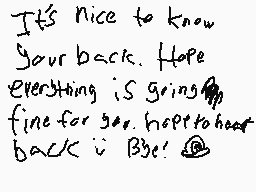 It's nice to know
your back. Hope
everything is going
fine for you. hope to hear
back ü Bye!